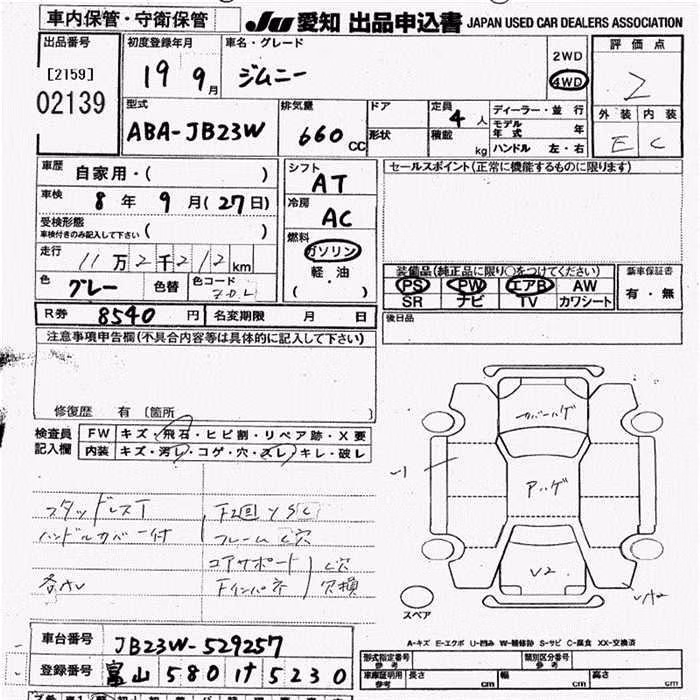 車内保管・守衛保管
JU 愛知 出品申込書 JAPAN USED CAR DEALERS ASSOCIATION
出品番号
[2159]
02139
初度登録年月
19 9月
車名・グレード
ジムニー
2WD
4WD
評価点
2
外装 内装
E C
型式
ABA-JB23W
排気量
660 CC
ドア
形状
定員
4人
積載
kg
ディーラー・並行
モデル年式 年
ハンドル 左・右
車歴
自家用・( )
車検
8年 9月(27日)
受検形態
車検付きのみ記入して下さい ( )
走行
11万2千212km
色
グレー
色替
色コード
ZOL
シフト
AT
冷房
AC
燃料
ガソリン
軽・油
( )
セールスポイント(正常に機能するものに限ります)
装備品(純正品に限り○をつけてください)
PS PW エアB AW
SR ナビ TV カワシート
新車保証書
有・無
後日品
R券 8540円 名変期限 月 日
注意事項申告欄(不具合内容等は具体的に記入して下さい)
修復歴 有〔箇所
検査員記入欄
FW キズ・飛石・ヒビ割・リペア跡・X要
内装 キズ・汚レ・コゲ・穴・スレ・キレ・破レ
スタッドレスT
ハンドルカバー付
フレームC穴
コアサポート C穴
Fインパネ 欠損
カバーハゲ
アハゲ
V2
スペア
A-キズ E-エクボ U-凹み W-補修跡 S-サビ C-腐食 XX-交換済
車台番号 JB23W-529257
登録番号 富山 580 け 5230
型式指定番号
参考
類別区分番号
参考
車庫証明用
参考
長さ cm 幅 cm 高さ cm